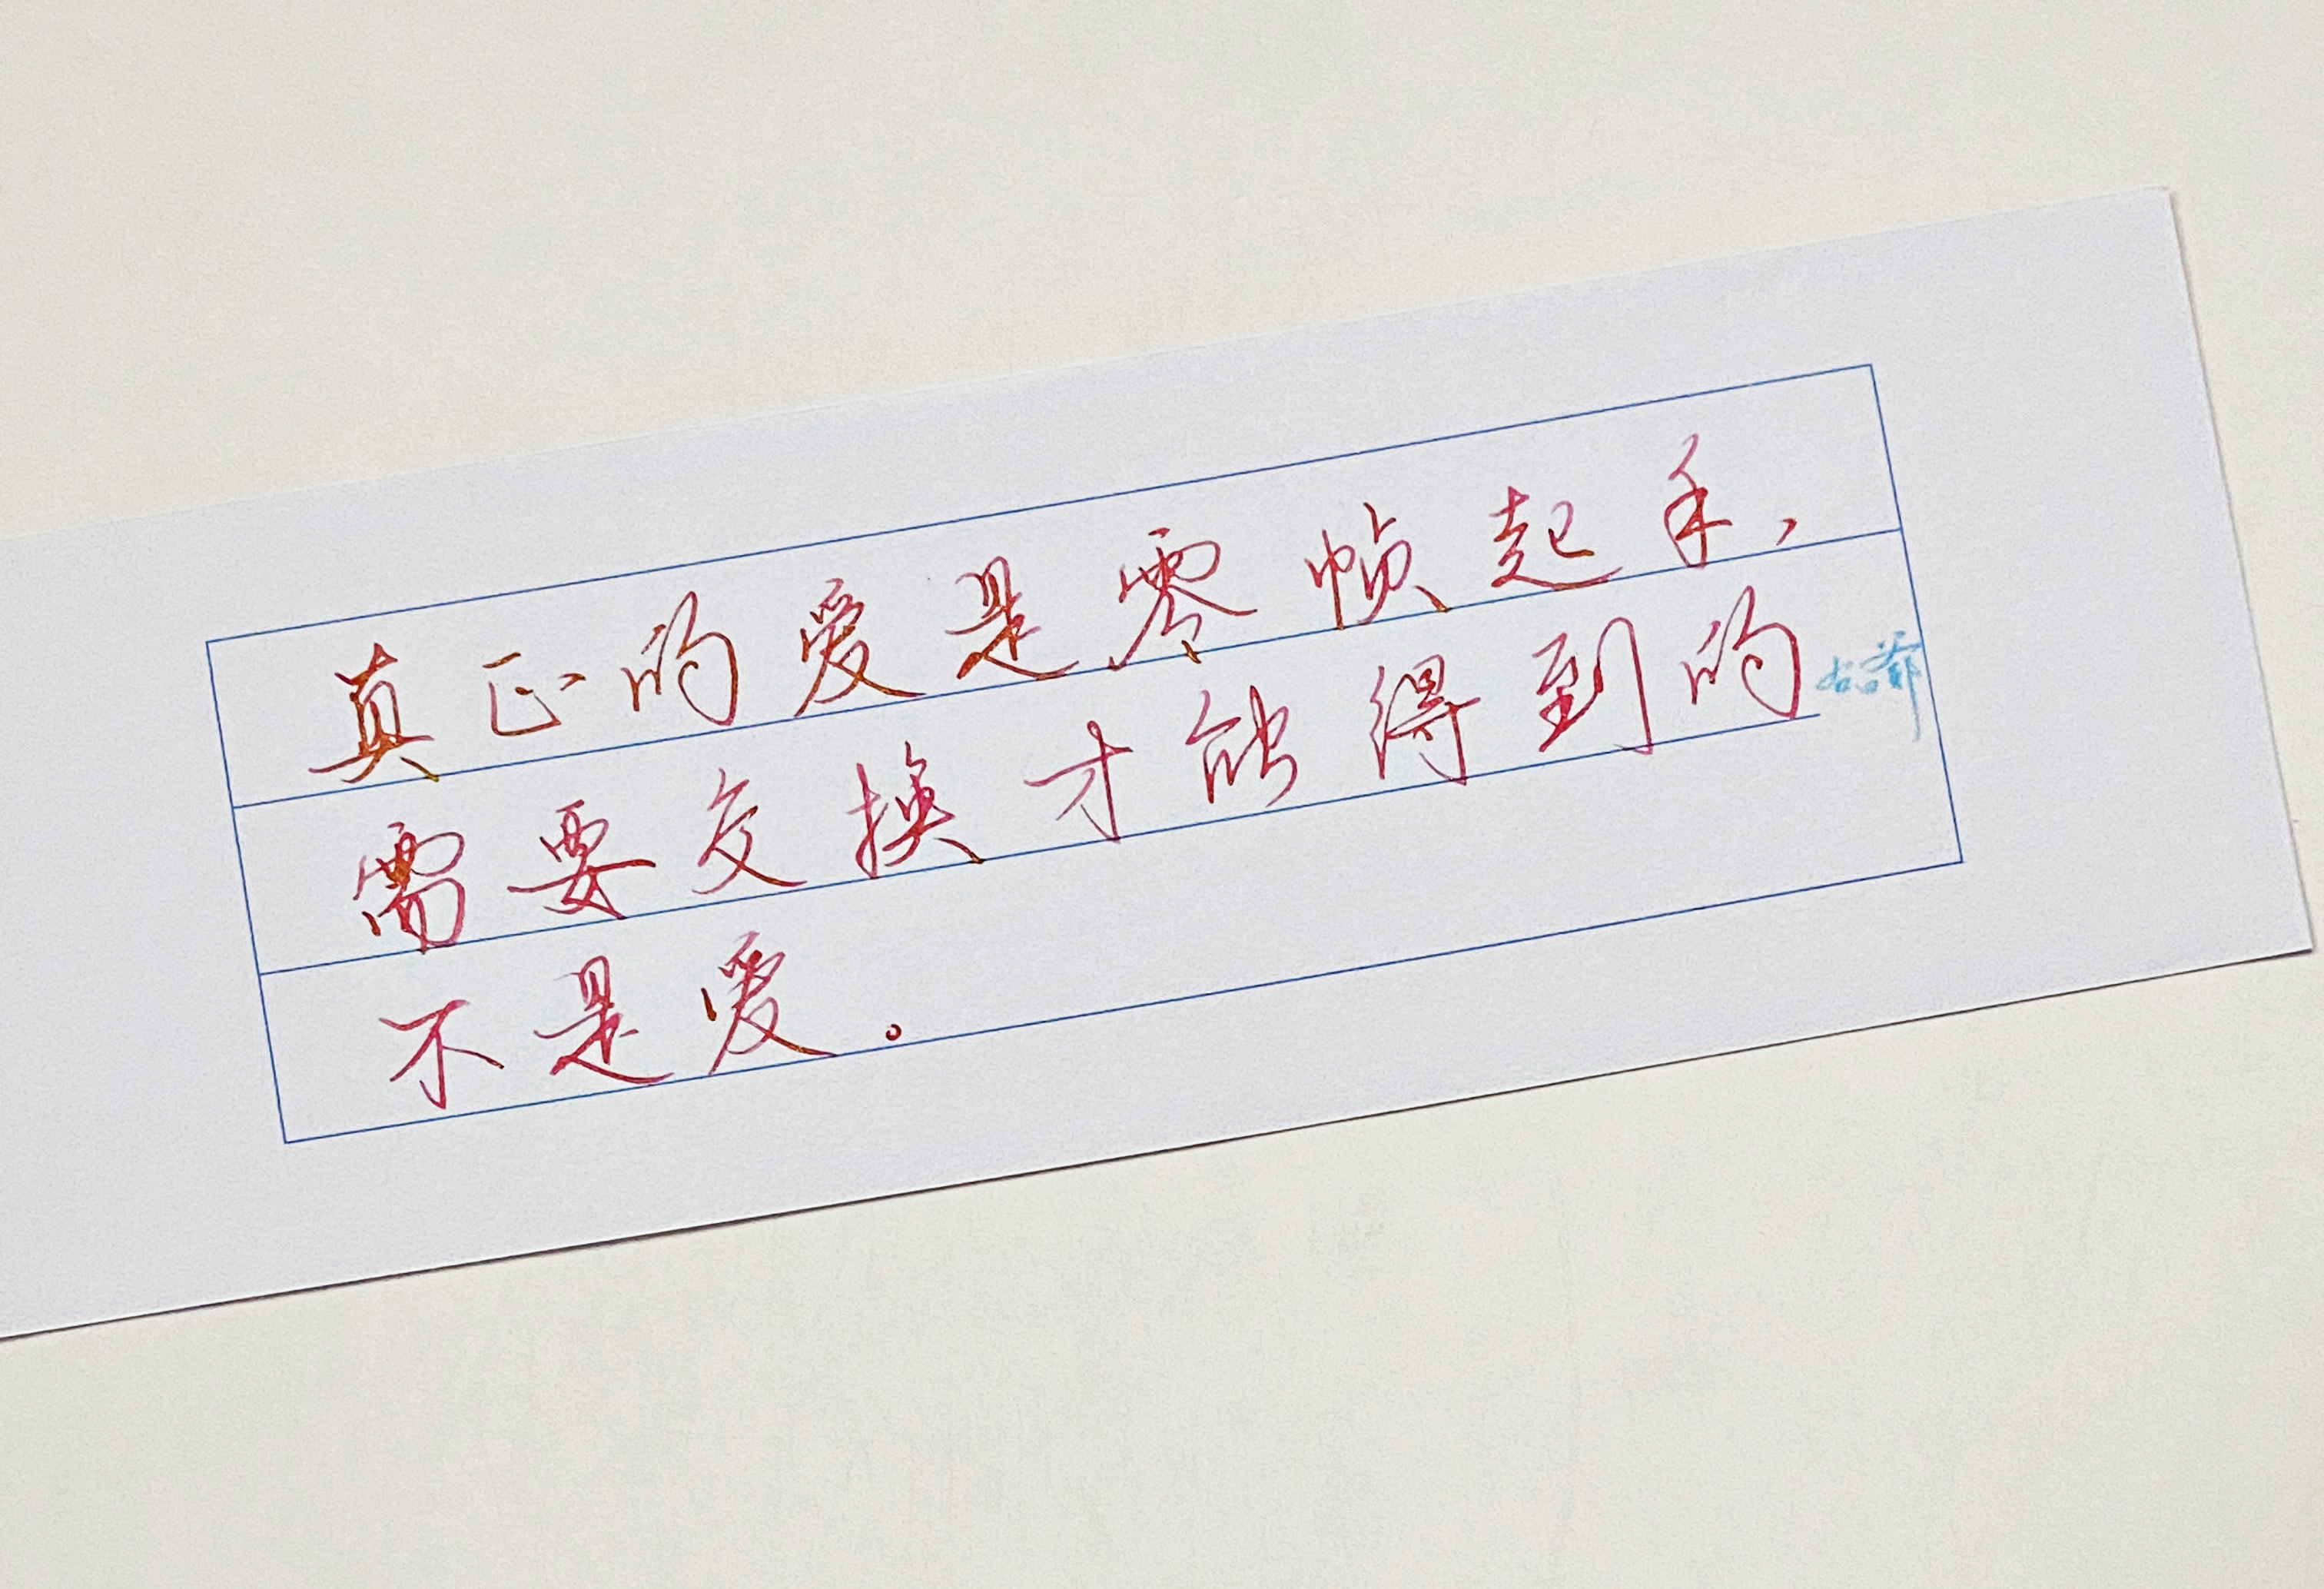 真正的爱是零帧起手，
需要交换才能得到的
不是爱。